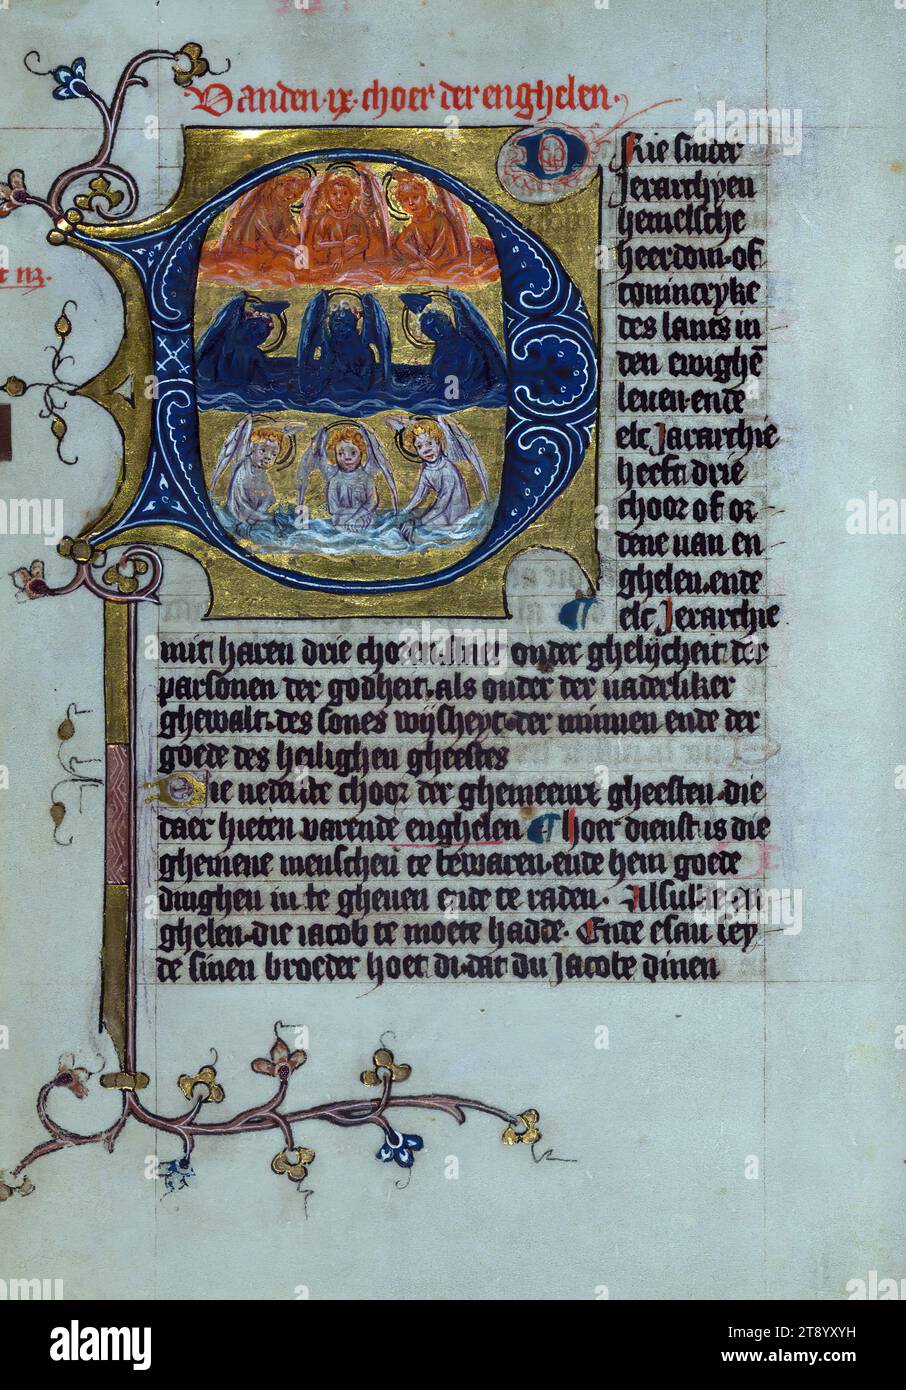 Vanden · ix · choer der enghelen ·
Drie sinder
Jerarchyen
hemelsche
heerdom · of
conincryke
des lants in
den ewighē
leuen · ende
elc Jararchie
heeft drie
choor of or
dene uan en
ghelen · ende
¶ elc Jerarchie
mit haren drie choren · sinet onder ghelijcheit der
parsonen der godheit · als onder der uaderliker
ghewalt · des sones wijscheyt · der minnen ende der
goede des heilighen gheestes
Die nederste choor der ghemeenre gheesten · die
daer hieten varende enghelen ¶ Hoer dienst is die
ghemene menschen te bewaren · ende hem goede
dinghen in te gheuen ende te raden · Alsulke en
ghelen · die iacob te moete hadde · Ende esau sey
de sinen broeder hoet di · dat du Jacobe dinen
alamy
Image ID: 2T8YXYH
www.alamy.com